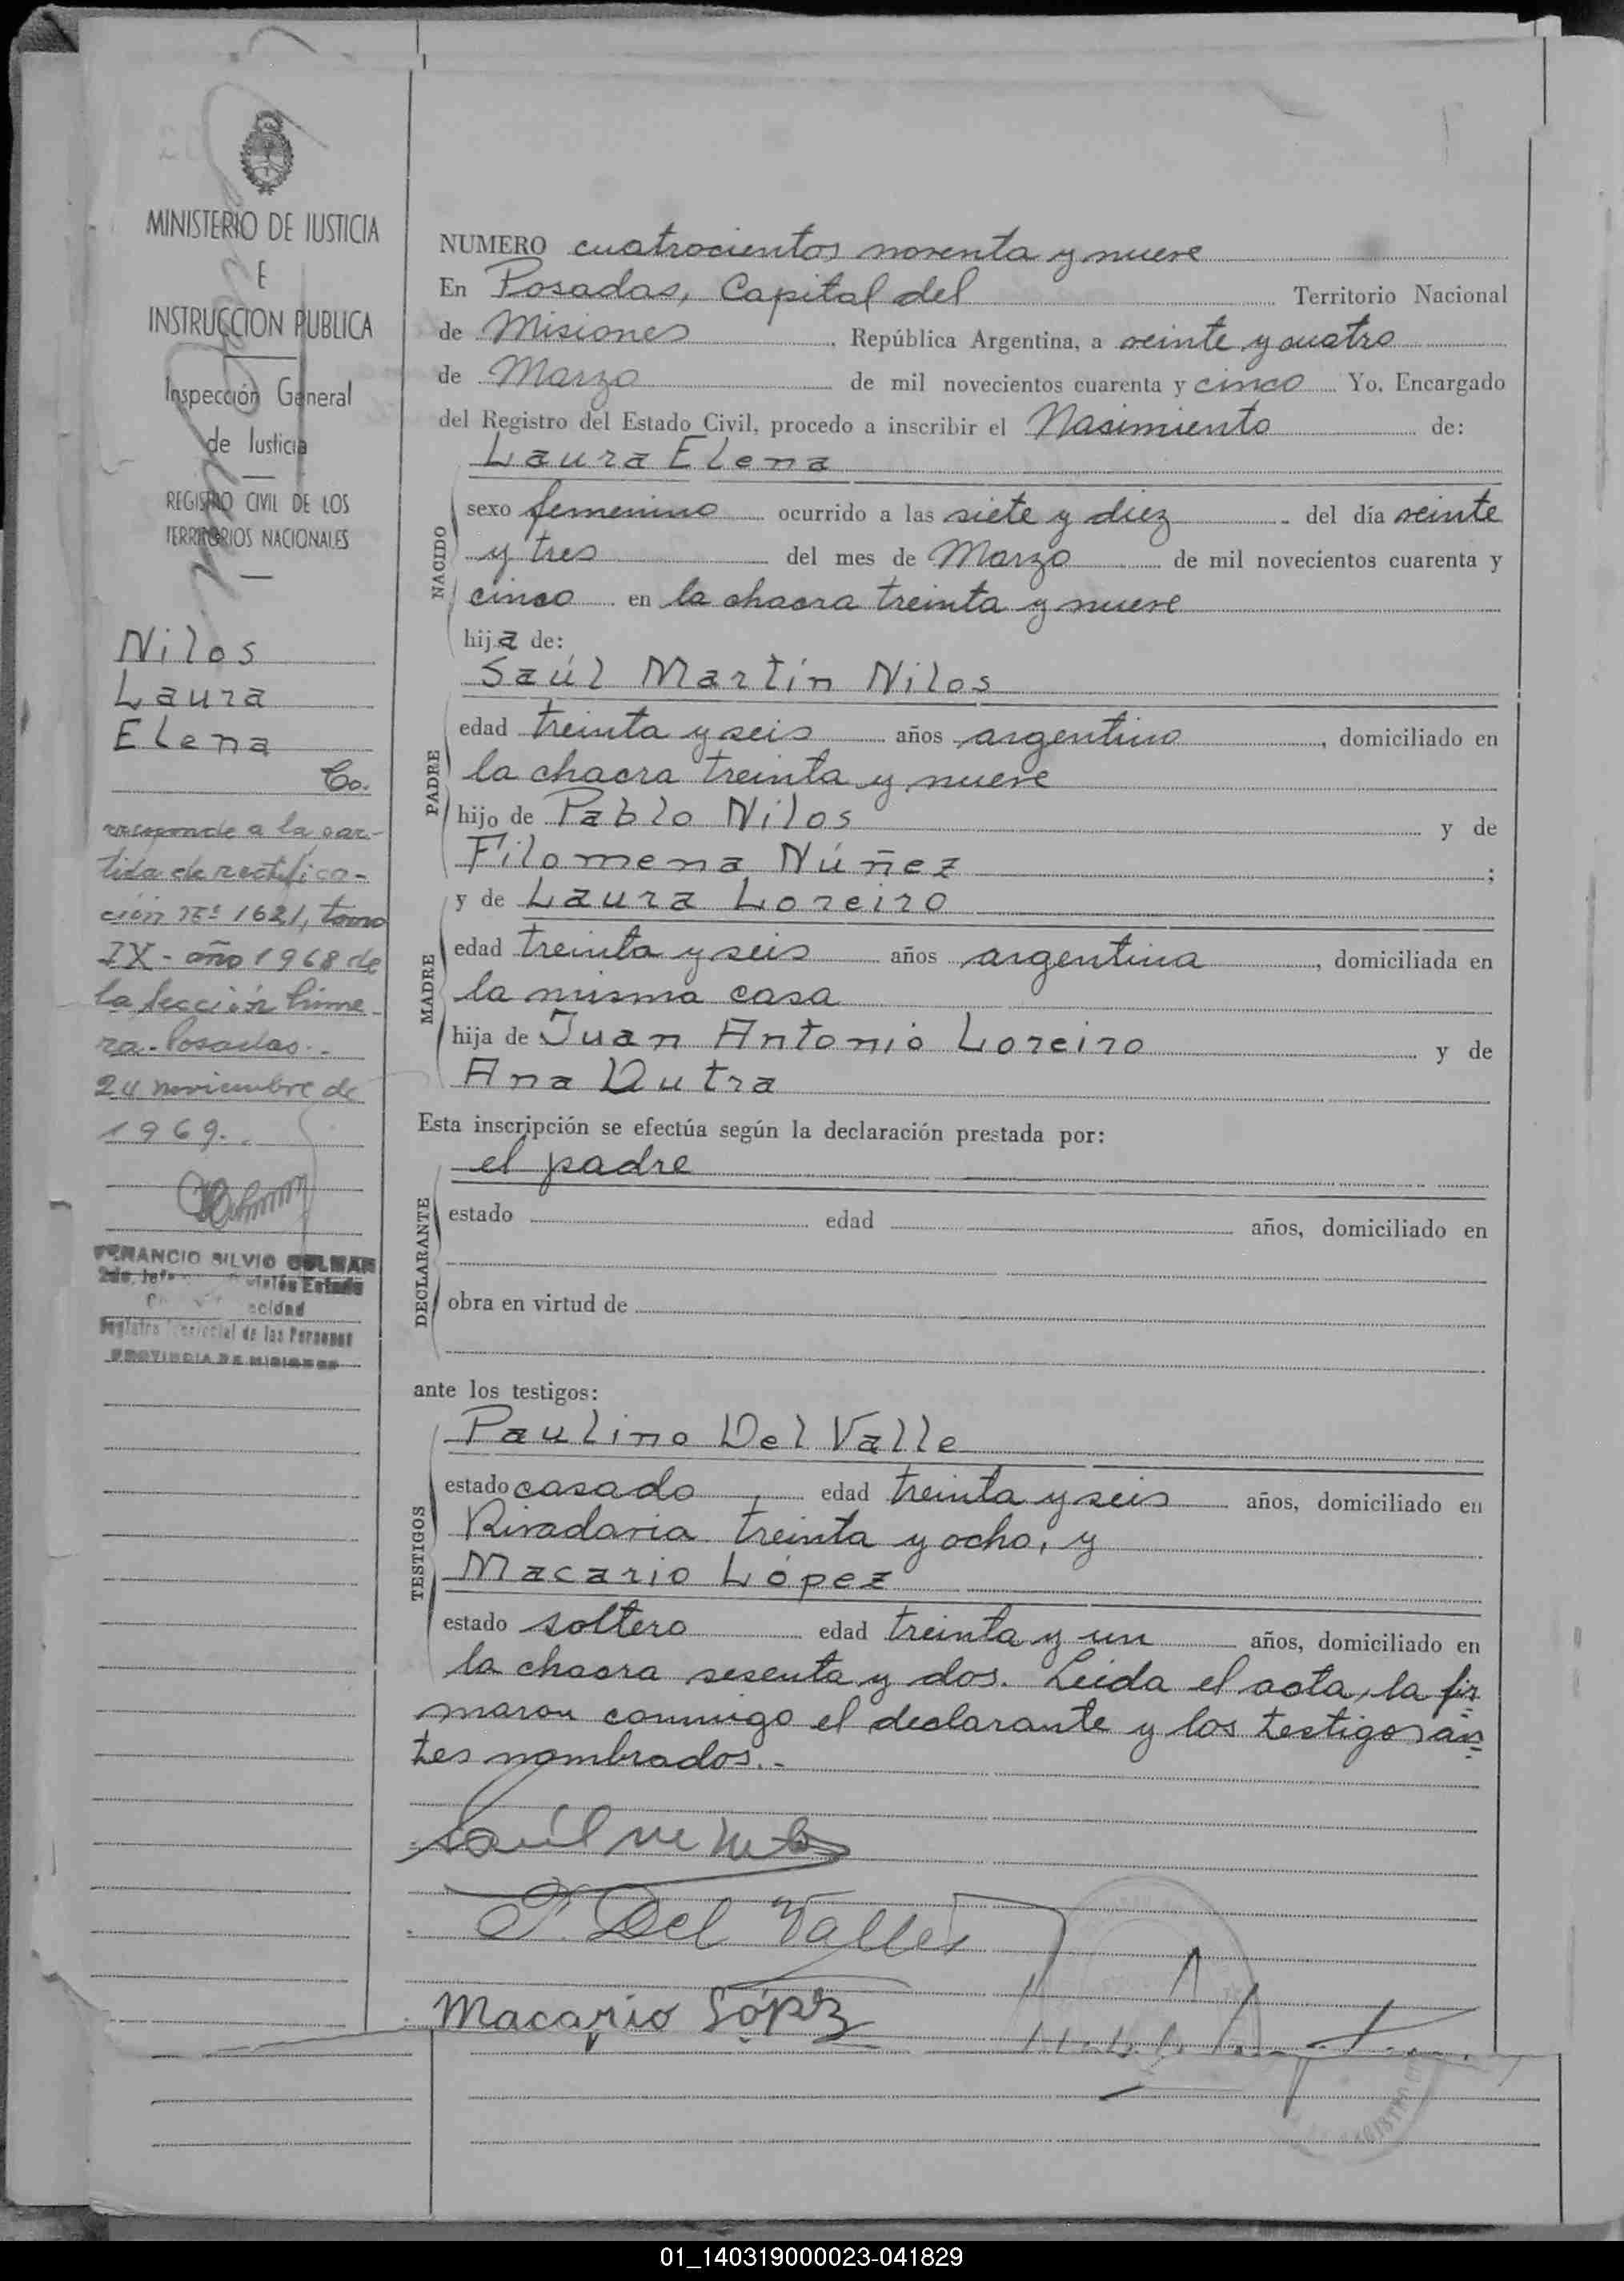 MINISTERIO DE JUSTICIA
E
INSTRUCCION PUBLICA
Inspección General
de Justicia
REGISTRO CIVIL DE LOS
TERRITORIOS NACIONALES
Nilos
Laura
Elena
Co.
rresponde a la par-
tida de rectifica-
ción Nº 1621, tomo
IX - año 1968 de
la Sección Prime-
ra - Posadas.-
24 noviembre de
1969.-
VENANCIO SILVIO COLMAN
2do. Jefe División Estado
Registro Provincial de las Personas
PROVINCIA DE MISIONES
NUMERO cuatrocientos noventa y nueve
En Posadas, Capital del Territorio Nacional
de Misiones, República Argentina, a veinte y cuatro
de Marzo de mil novecientos cuarenta y cinco Yo, Encargado
del Registro del Estado Civil, procedo a inscribir el Nasimiento de:
Laura Elena
NACIDO
sexo femenino ocurrido a las siete y diez del día veinte
y tres del mes de Marzo de mil novecientos cuarenta y
cinco en la chacra treinta y nueve
hija de:
Saúl Martín Nilos
PADRE
edad treinta y seis años argentino, domiciliado en
la chacra treinta y nueve
hijo de Pablo Nilos y de
Filomena Núñez ;
y de Laura Loreiro
MADRE
edad treinta y seis años argentina, domiciliada en
la misma casa
hija de Juan Antonio Loreiro y de
Ana Dutra
Esta inscripción se efectúa según la declaración prestada por:
el padre
DECLARANTE
estado edad años, domiciliado en
obra en virtud de
ante los testigos:
Paulino Del Valle
TESTIGOS
estado casado edad treinta y seis años, domiciliado en
Rivadavia treinta y ocho, y
Macario López
estado soltero edad treinta y un años, domiciliado en
la chacra sesenta y dos. Leida el acta, la fir
maron conmigo el declarante y los testigos an
tes nombrados.-
Saúl M Nilos
P. Del Valle
Macario López
01_140319000023-041829